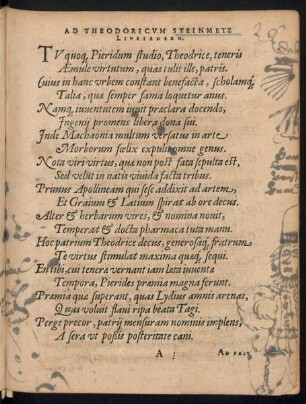 AD THEODORICVM STEINMETZ
LIPSIENSEM.
TV quoq, Pieridum studio, Theodrice, teneris
Æmule virtutum, quas tulit ille, patris.
Cuius in hanc vrbem constant benefacta, scholamq́,
Talia, quæ semper fama loquetur anus.
Namq, iuuentutem iuuit præclara docendo,
Ingenij promens libera dona sui.
Inde Machaonia multum versatus in arte
Morborum fœlix expulit omne genus.
Nota viri virtus, quæ non post fata sepulta est,
Sed velut in natis viuida facta tribus.
Primus Apollineam qui sese addixit ad artem,
Et Graium & Latium spirat ab ore decus.
Alter & herbarum vires, & nomina nouit,
Temperat & docta pharmaca tuta manu.
Hoc patrium Theodrice decus, generosaq́, fratrum
Te virtus stimulat maxima quæq, sequi.
En tibi, cui tenera vernant iam læta iuuenta
Tempora, Pierides præmia magna ferunt.
Præmia quæ superant, quas Lydius amnis arenas,
Quas voluit flaui ripa beata Tagi.
Perge precor, patrij mensuram nominis implens,
A sera vt possis posteritate cani.
A